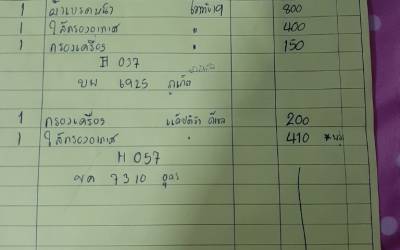 1 ผ้าเบรคหน้า 800
1 ไส้กรองอากาศ " 400
1 กรองเครื่อง " 150
H 037
บษ 6925 ภูเก็ต
1 กรองเครื่อง แค๊ปติว่า ดีเซล 200
1 ไส้กรองอากาศ " 410
H 057
ขค 7310 อุดร